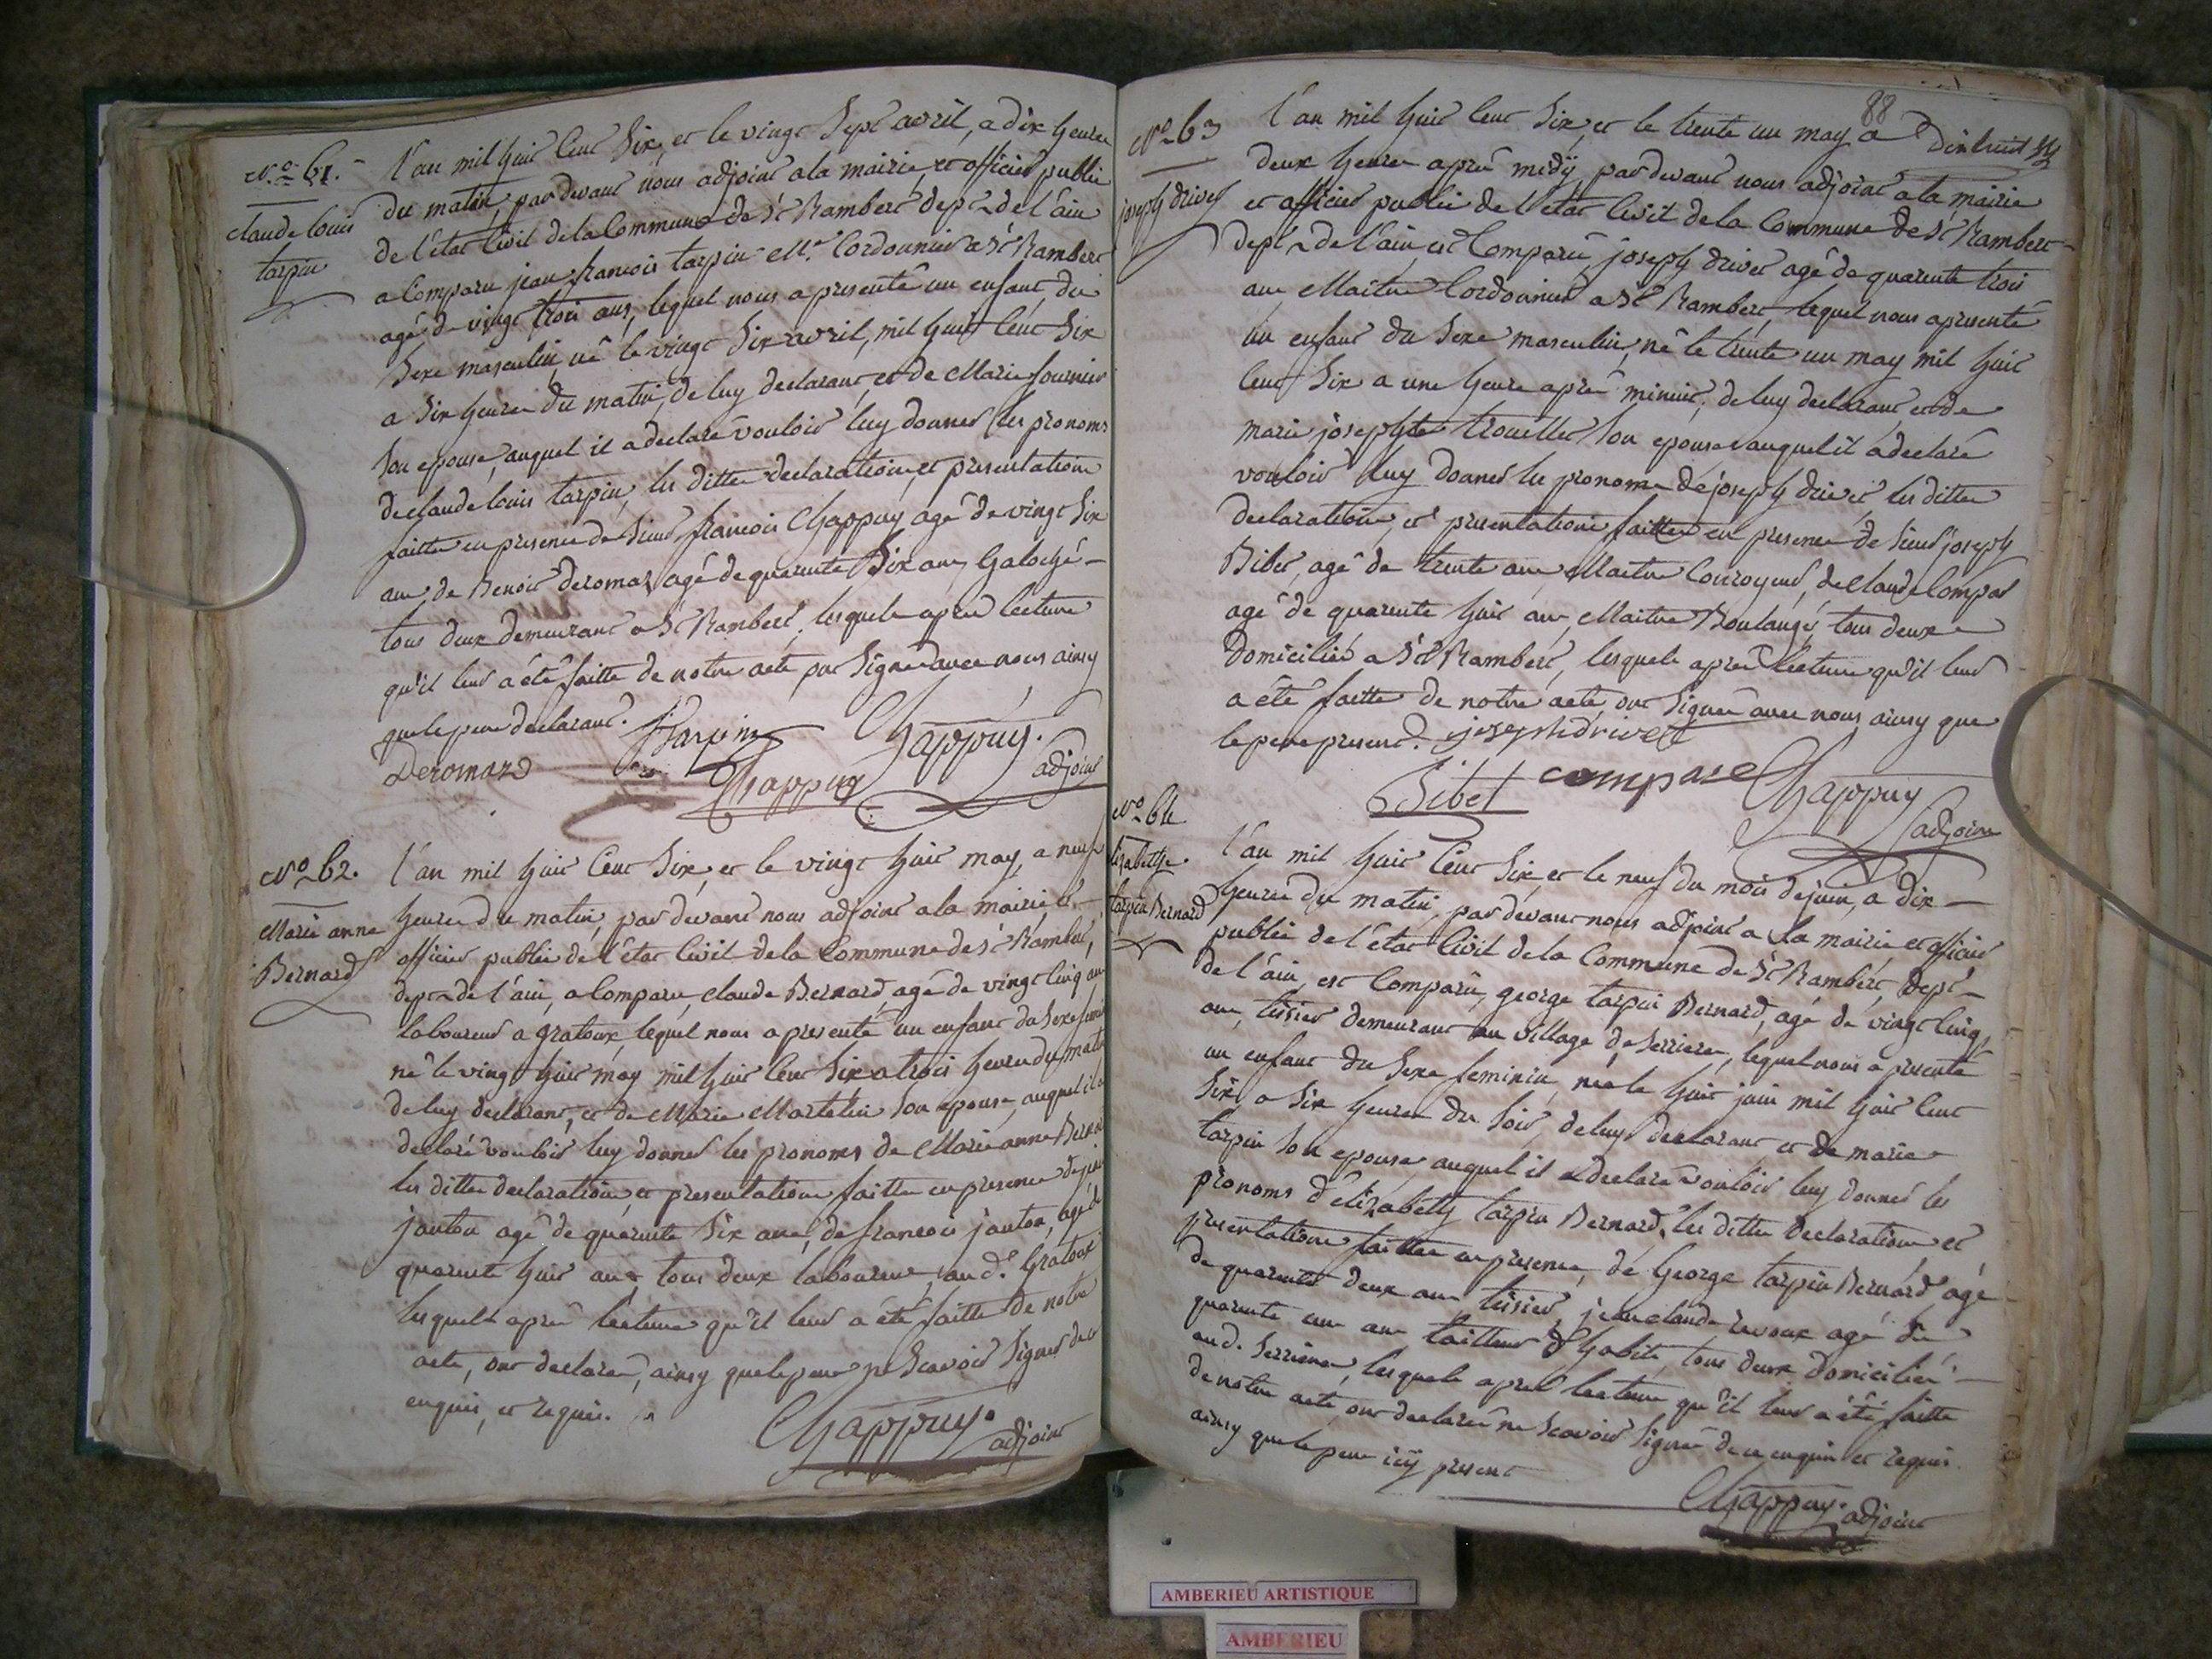 N.o 61.
Claude louis
tarpin
L'an mil huit Cent Six, et le vingt Sept avril, a dix heures
du matin, par devant nous adjoint a la mairie et officier public
de l'état Civil de la Commune de St Rambert dept de l'ain
a Comparu jean francois tarpin Me. Cordonnier a St Rambert
agé de vingt trois ans, lequel nous a presenté un enfant du
Sexe masculin né le vingt Six avril, mil huit Cent Six
a Six heures du matin, de luy declarant, et de Marie fournier
Son epouse, auquel il a declaré vouloir luy donner les pronoms
de claude louis tarpin, les dittes declaration et presentation
faittes en presence de Sieur francois Chappuy agé de vingt Six
ans, de Benoit deromas agé de quarente Six ans, Galoché
tous deux demeurant a St Rambert, lesquels aprés lecture
qu'il leur a été faitte de notre acte ont Signé avec nous ainsy
que le pere declarant. Tarpin Chappuy.
Deromas Chappuy adjoint
No 62.
Marie anne
Bernard
L'an mil huit Cent Six, et le vingt huit may, a neuf
heures du matin, par devant nous adjoint a la mairie et
officier public de l'état Civil de la Commune de St Rambert,
dept de l'ain, a Comparu, claude Bernard, agé de vingt Cinq ans
laboureur a gratoux, lequel nous a presenté un enfant du Sexe
né le vingt huit may mil huit Cent Six a trois heures du matin
de luy declarant, et de Marie Martelin Son epouse, auquel il a
declaré vouloir luy donner les pronoms de Marie anne Bernard
les dittes declaration et presentation faittes en presence de
janton agé de quarente Six ans, de francois janton, agé de
quarente huit ans tous deux laboureurs, aud. Gratoux
lesquels aprés lecture qu'il leur a été faitte de notre
acte, ont declaré, ainsy que le pere ne Scavoir Signer de ce
enquis, et requis.
Chappuy.
adjoint
88
dixhuit
No 63
joseph drivet
L'an mil huit Cent Six, et le trente un may a
deux heures aprés midy, par devant nous adjoint a la mairie
et officier public de l'état Civil de la Commune de St Rambert
dept de l'ain, est Comparu joseph drivet agé de quarente trois
ans, Maitre Cordonnier a St Rambert, lequel nous a presenté
un enfant du Sexe masculin, né le trente un may mil huit
Cent Six a une heure aprés minuit, de luy declarant et de
marie josephte trouillet Son epouse auquel il a declaré
vouloir luy donner les pronoms de joseph drivet, les dittes
declaration, et presentation faittes en presence de Sieur joseph
Bibet, agé de trente ans Maitre Couroyeur, de claude Compas
agé de quarente huit ans, Maitre Boulangé, tous deux
domicilié a St Rambert, lesquels aprés lecture qu'il leur
a été faitte de notre acte, ont Signé avec nous ainsy que
le pere present. joseph drivet
Bibet compase Chappuy
adjoint
No 64
Elizabeth
tarpin Bernard
L'an mil huit Cent Six, et le neuf du mois de juin, a dix
heures du matin, par devant nous adjoint a la mairie et officier
public de l'état Civil de la Commune de St Rambert, dept
de l'ain, est Comparu, george tarpin Bernard, agé de vingt Cinq
ans, tissier demeurant au village de Serrieres, lequel nous a presenté
un enfant du Sexe feminin, née le huit juin mil huit Cent
Six, a Six heures du Soir, de luy declarant et de marie
tarpin Son epouse, auquel il a declaré vouloir luy donner les
pronoms d'élizabeth tarpin Bernard, les dittes declaration et
presentation faittes en presence, de George tarpin Bernard agé
de quarente deux ans tissier, jean claude ravoux agé de
quarente un ans tailleur d'habits, tous deux domicilié
aud. Serrieres, lesquels aprés lecture qu'il leur a été faitte
de notre acte, ont declaré ne Scavoir Signer de ce enquis et requis
ainsy que le pere icy present
Chappuy. adjoint
AMBERIEU ARTISTIQUE
AMBERIEU